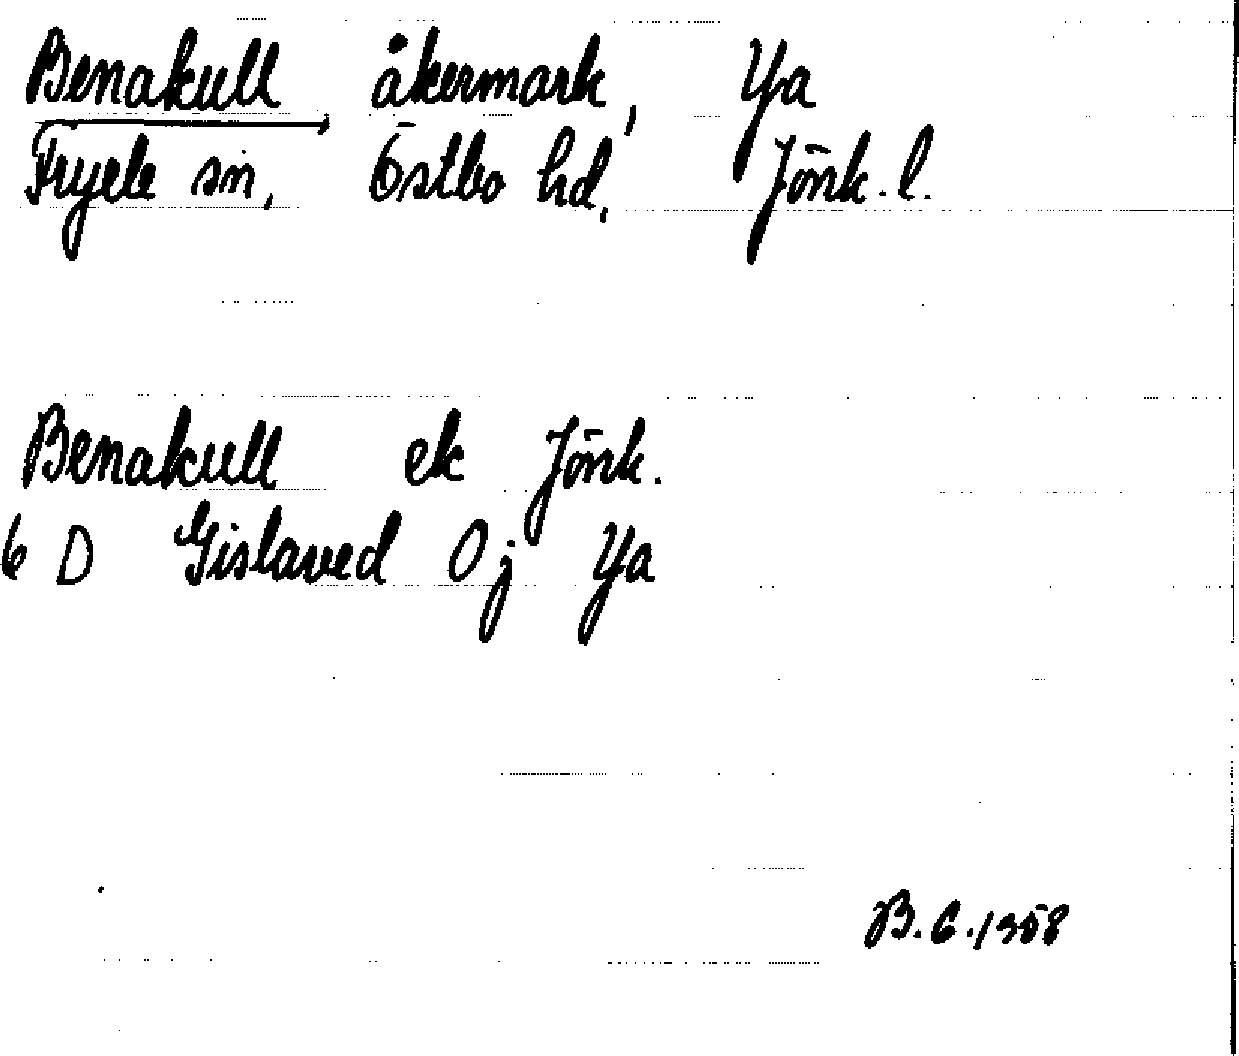 Benakull, åkermark, Ya
Fryele sn, Östbo hd, Jönk. l.
Benakull ek Jönk.
6 D Gislaved Oj Ya
B.G. 1358